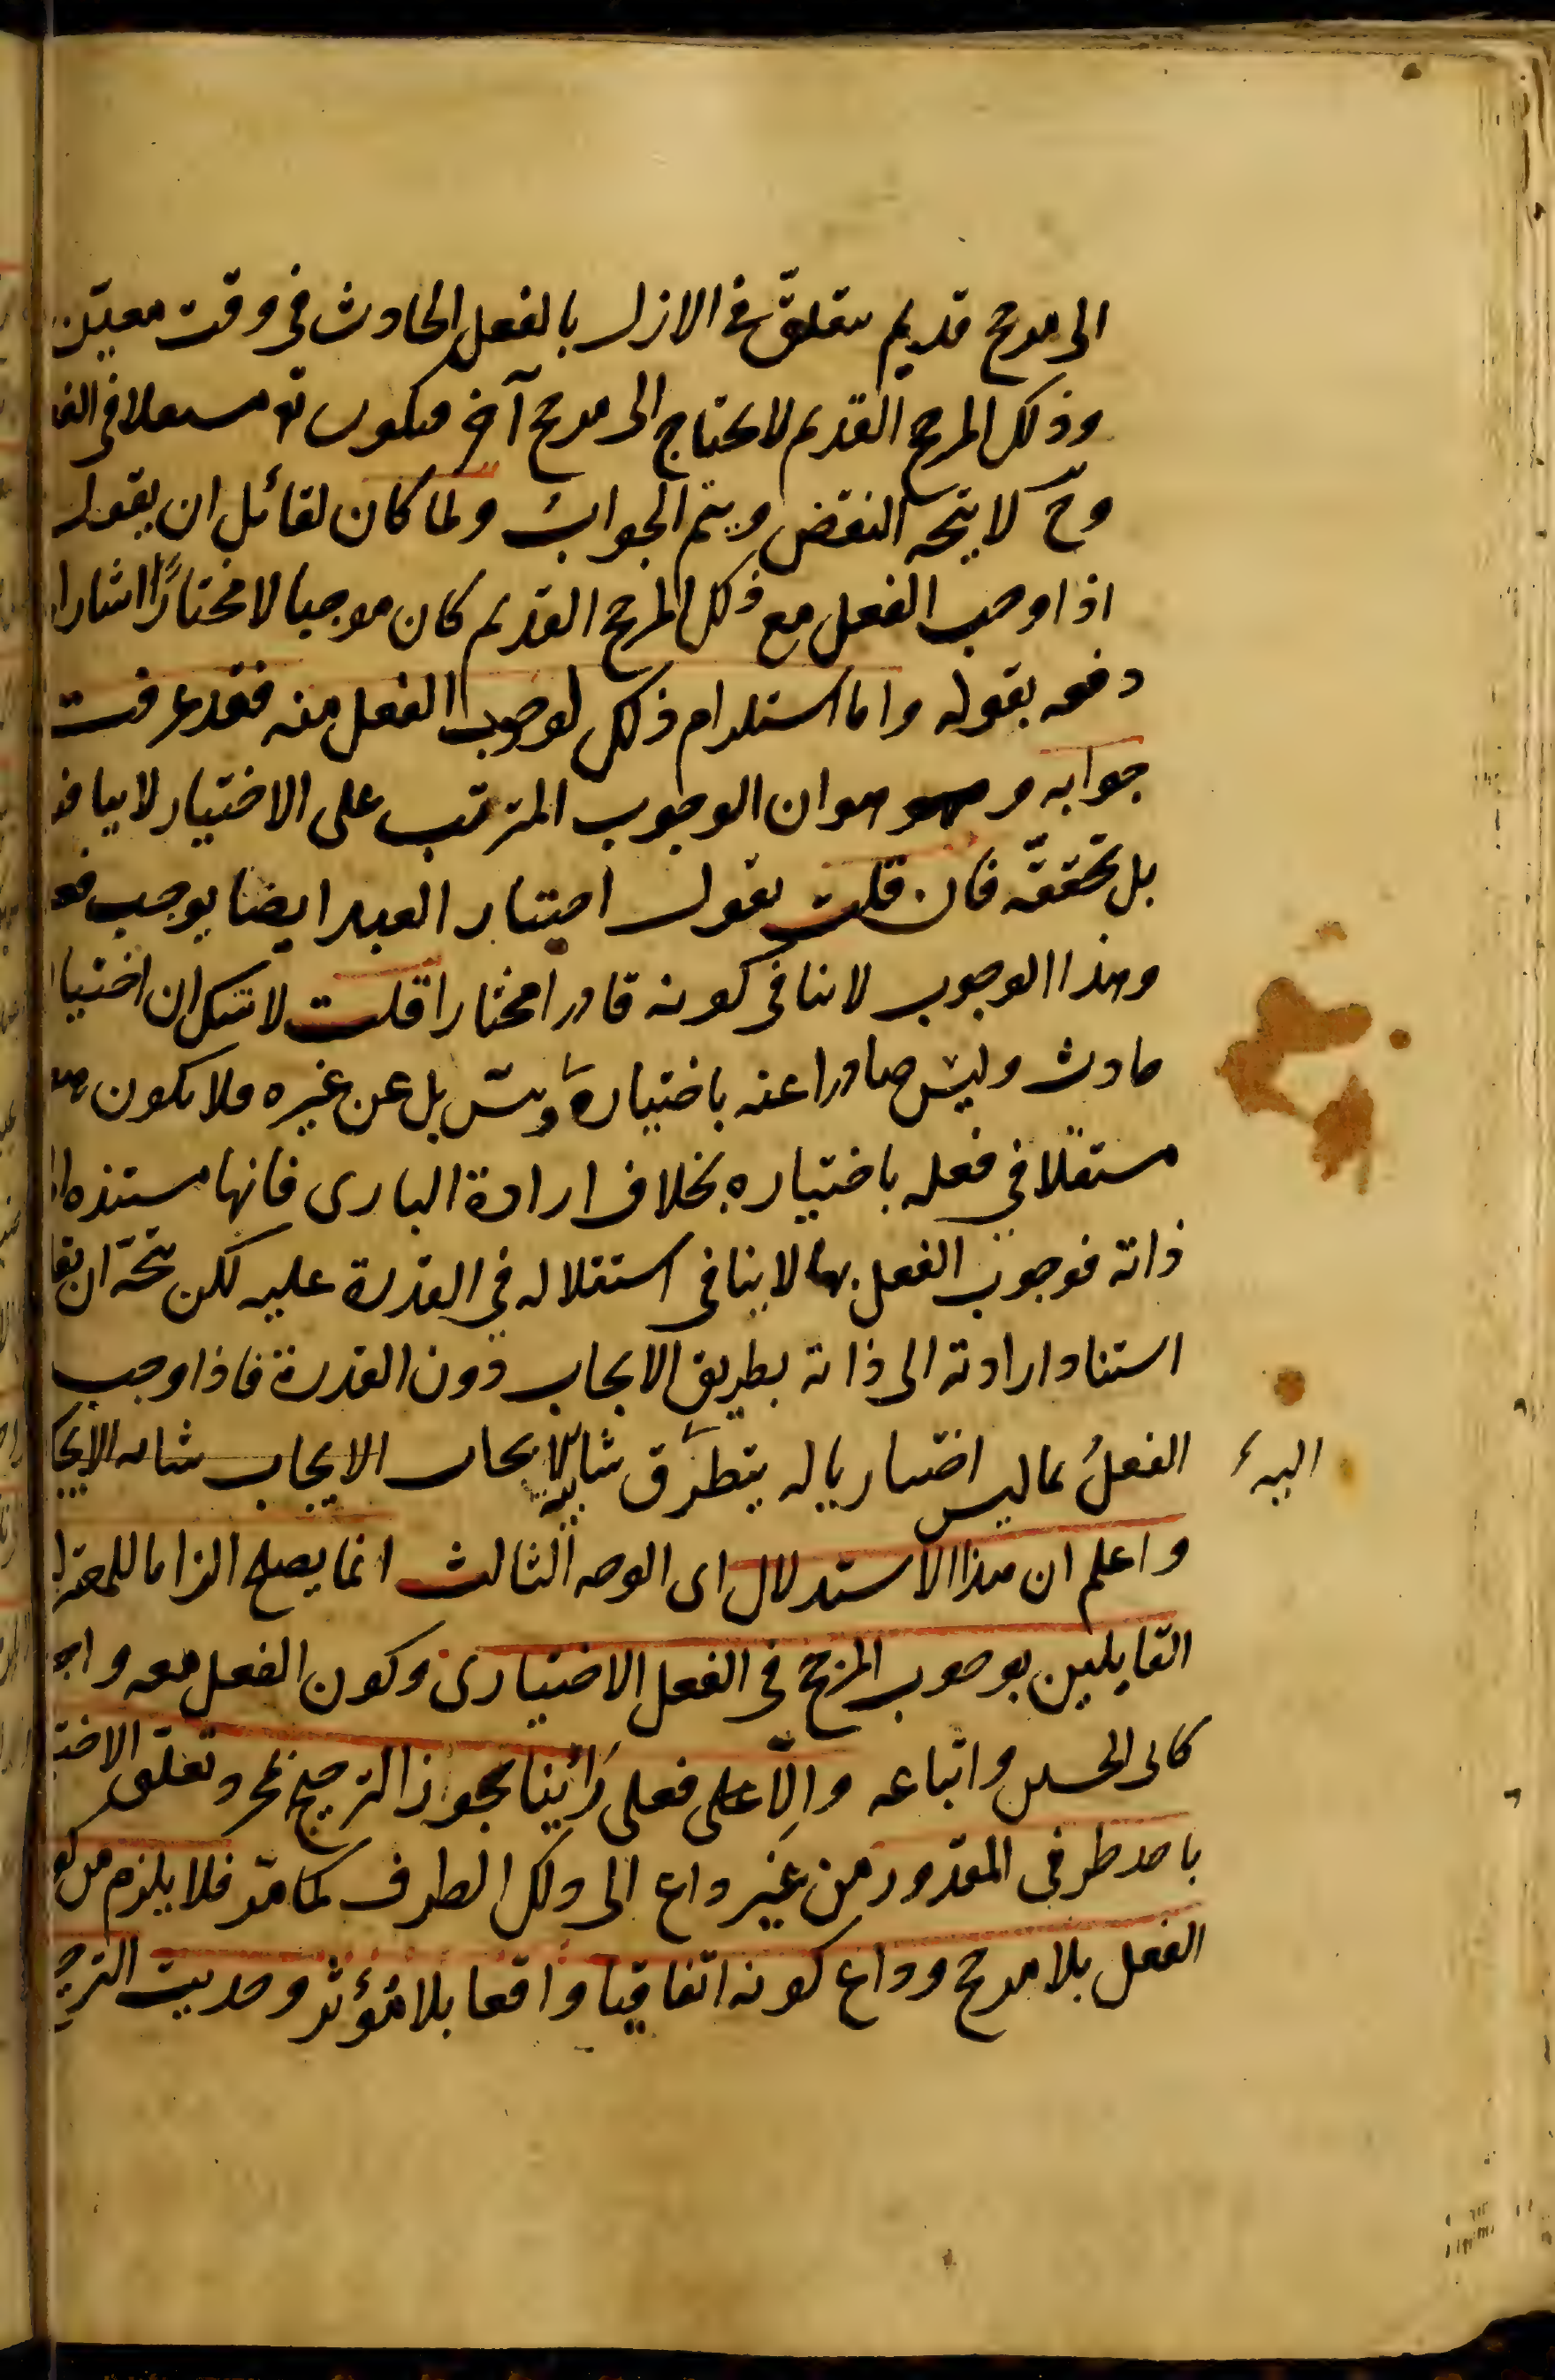 الى مرجح قديم متعلق فى الازل بالفعل الحادث فى وقت معين
وذلك المرجح القديم لا يحتاج الى مرجح آخر فيكون تع مستقلا فى الفعل
وح لا يتجه النقض ويتم الجواب ولما كان لقائل ان يقول
اذا وجب الفعل مع ذلك المرجح القديم كان موجبا لا مختارًا اشار ا
دفعه بقوله واما استلزام ذلك لوجوب الفعل منه فقد عرفت
جوابه و هو ان الوجوب المترتب على الاختيار لا ينافيه
بل يحققه فان قلت نقول اختيار العبد ايضا يوجب فعله
وهذا الوجوب لا ينافى كونه قادرا مختارا قلت لا شك ان اختيا
حادث وليس صادرا عنه باختياره و بل عن غيره فلا يكون هو
مستقلا فى فعله باختياره بخلاف ارادة البارى فانها مستندة ا
ذاته فوجوب الفعل بها لا ينافى استقلاله فى القدرة عليه لكن يتجه ان يقا
استناد ارادته الى ذاته بطريق الايجاب دون القدرة فاذا وجب
الفعلُ بما ليس اختياريا له يتطرق شايبة الايجاب
اليه
واعلم ان هذا الاستدلال اى الوجه الثالث انما يصلح الزاما للمعتزلة
القايلين بوجوب المرجح فى الفعل الاختيارى وكون الفعل معه واجبا
كابى الحسين واتباعه والّا فعلى رأينا يجوز الترجيح بمجرد تعلق الاختيار
باحد طرفى المقدور من غير داع الى ذلك الطرف كما مرّ فلا يلزم من كو
الفعل بلا مرجح وداع كونه اتفاقيا واقعا بلا مؤثر وحديث الترجيح